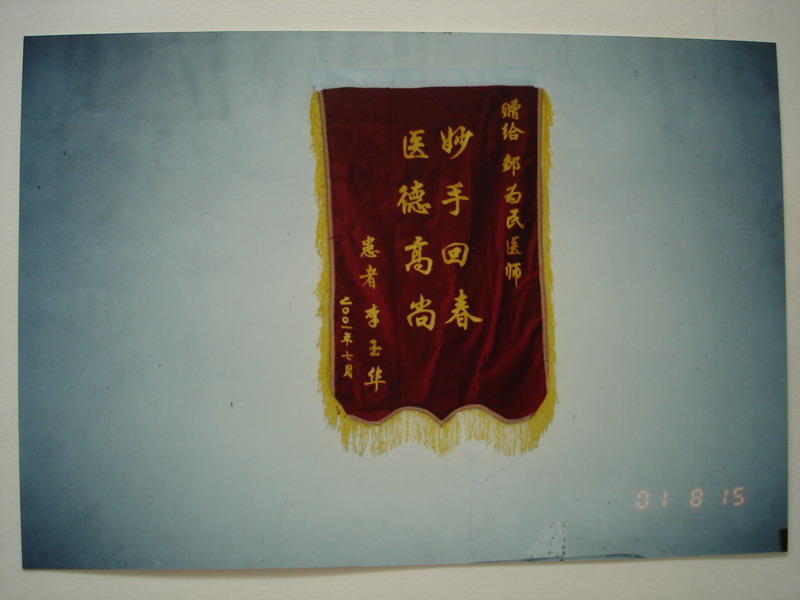 赠给 邹为民医师
妙手回春
医德高尚
患者 李玉华
二〇〇一年七月
01 8 15